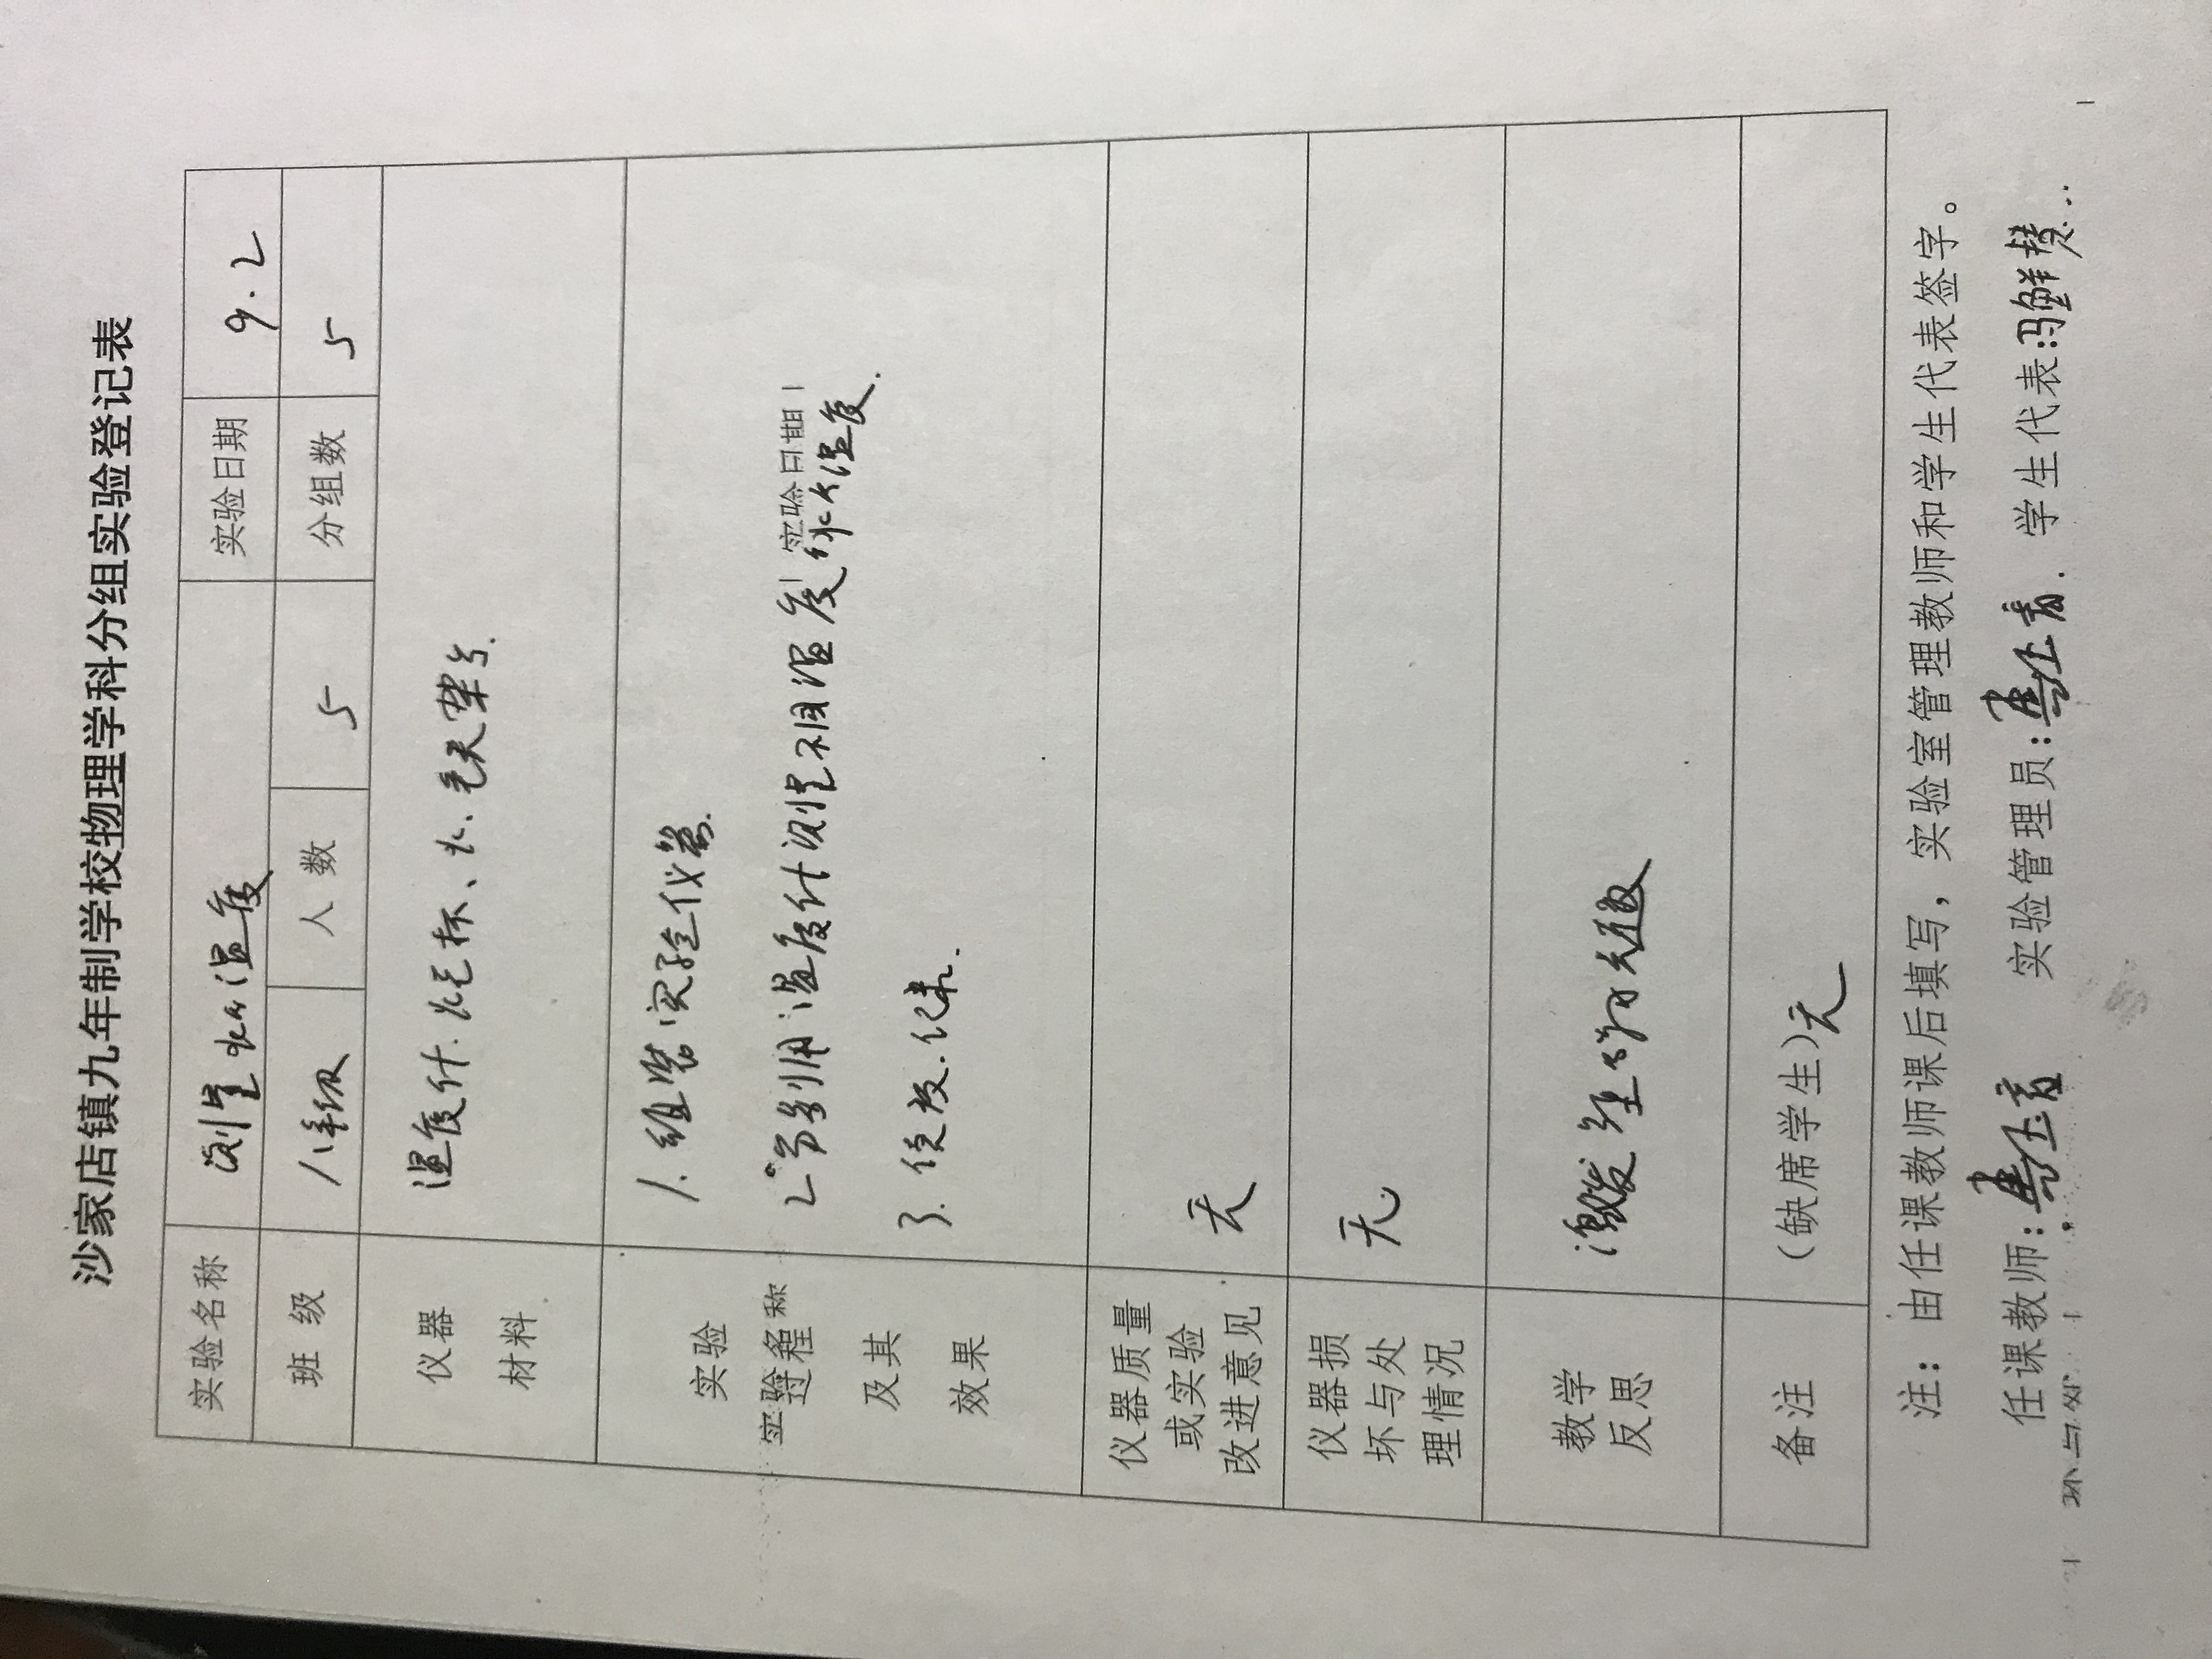 沙家店镇九年制学校物理学科分组实验登记表
实验名称 测量水的温度 实验日期 9.2
班 级 八年级 人 数 5 分组数 5
仪器 材料 温度计.烧杯、水、
实验 过程 及其 效果
1. 组装实验仪器.
2 利用温度计测量不同温度的水的温度.
3.
仪器质量 或实验 改进意见 无
仪器损 坏与处 理情况 无
教学 反思 激发学生学习兴趣
备注 (缺席学生)无
注：由任课教师课后填写，实验室管理教师和学生代表签字。
任课教师: 实验管理员: 学生代表:冯鲜慧